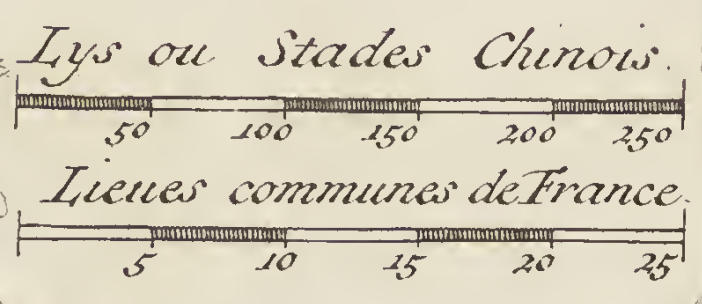 Lys ou Stades Chinois.
50 100 150 200 250
Lieues communes de France.
5 10 15 20 25